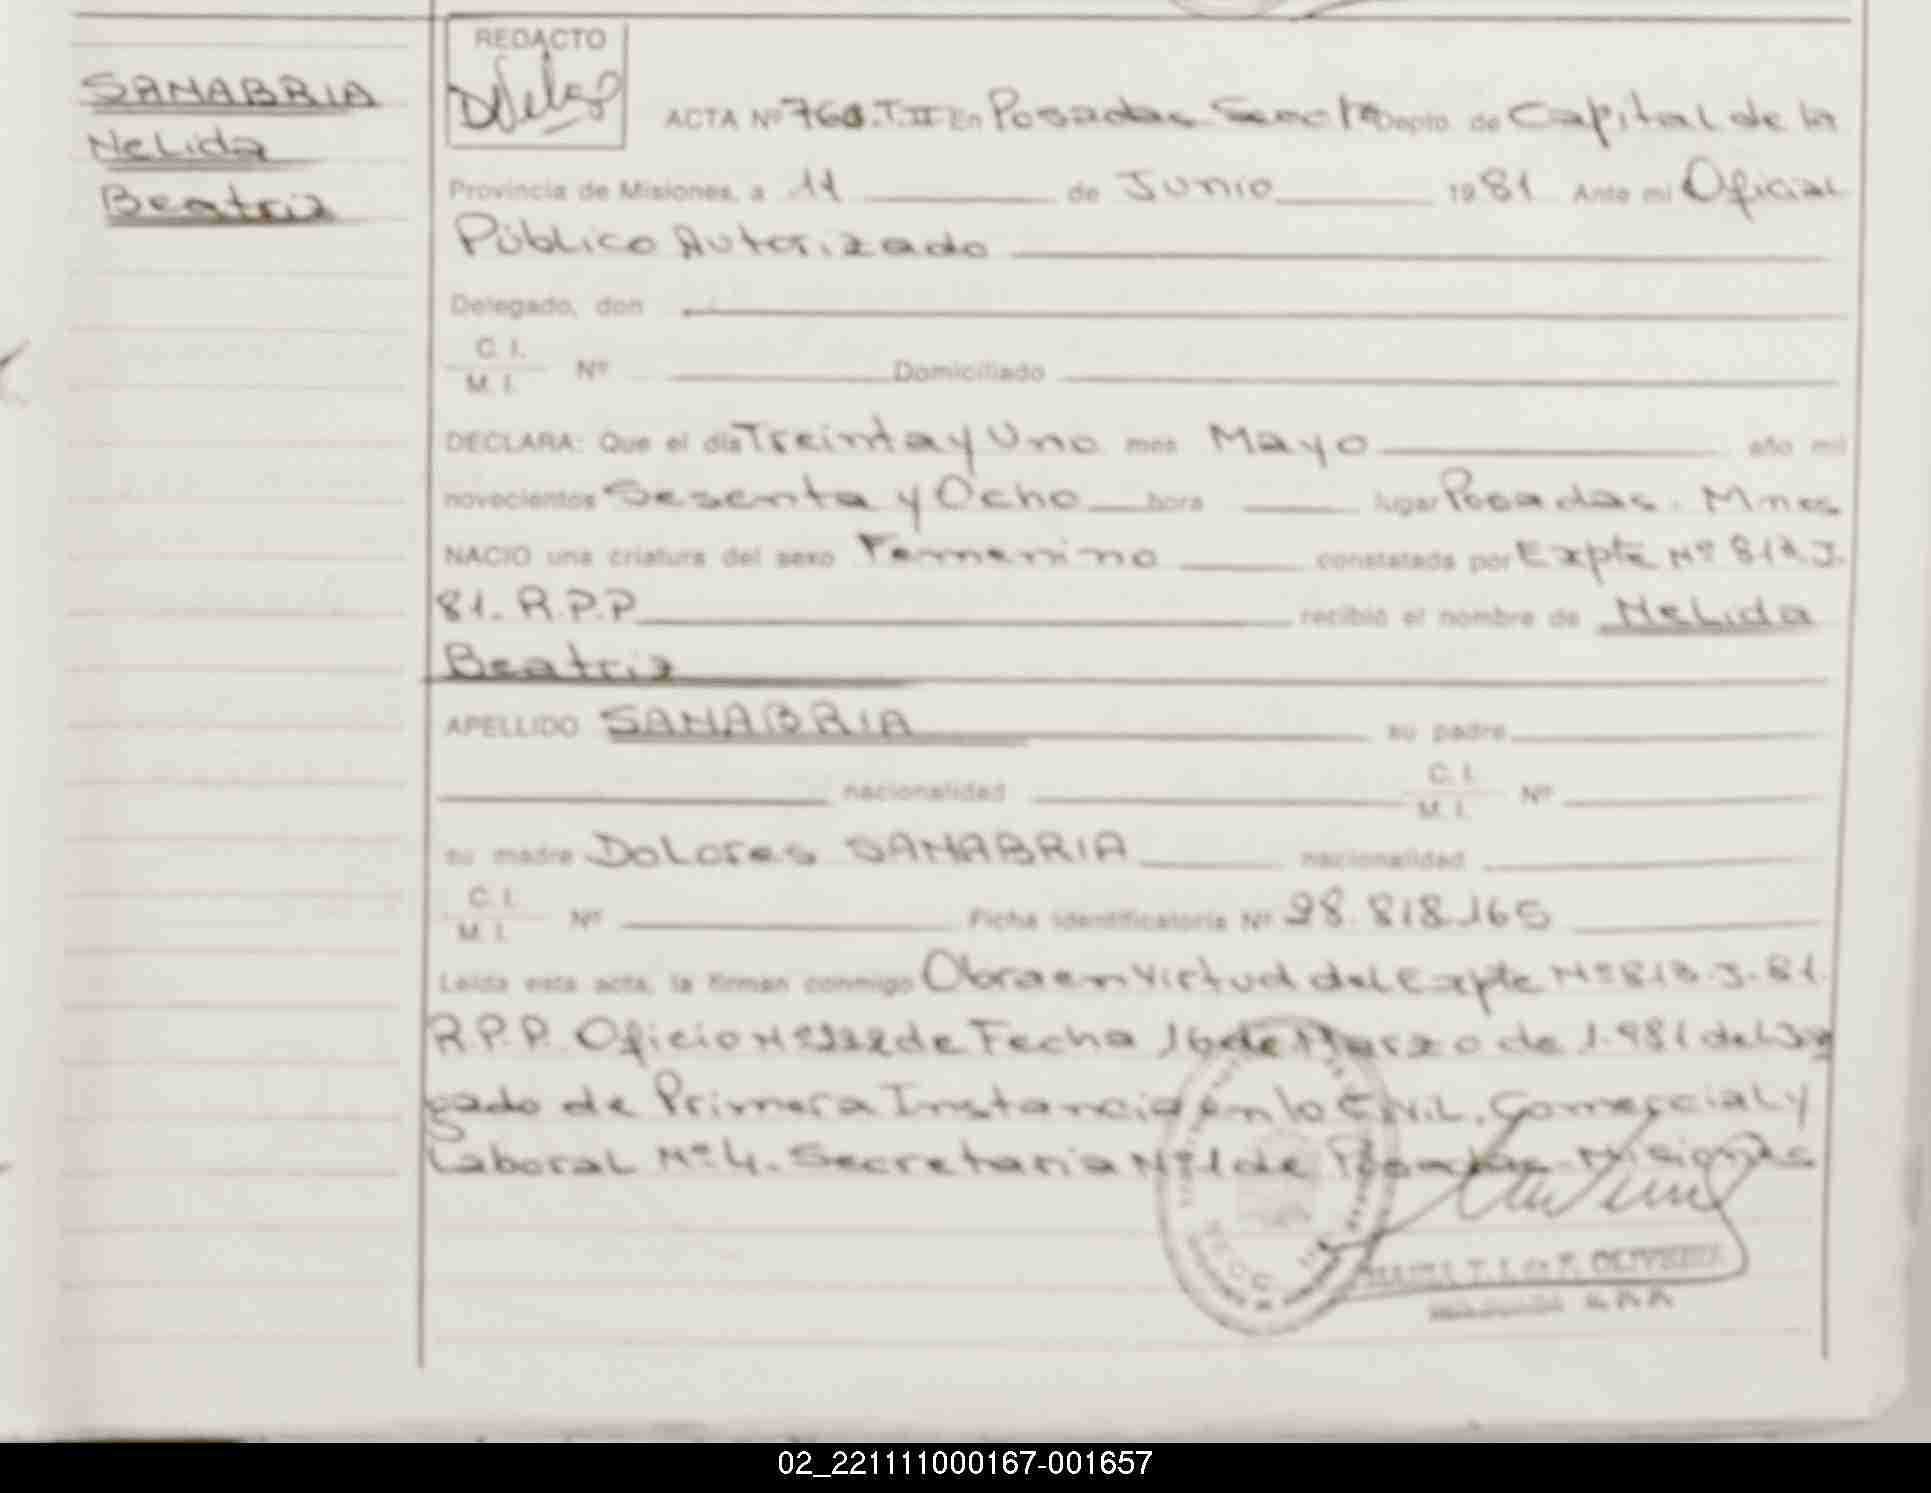 SANABRIA
Nelida
Beatriz
REDACTO
ACTA Nº 760.T.II En Posadas Secc 1ª Depto. de Capital de la
Provincia de Misiones, a 11 de Junio 1981 Ante mi Oficial
Público Autorizado
Delegado, don
C. I.
M. I. Nº Domiciliado
DECLARA: Que el día Treinta y Uno mes Mayo año mil
novecientos Sesenta y Ocho hora lugar Posadas. Mnes
NACIO una criatura del sexo Femenino constatada por Expte Nº 813.J.
81. R.P.P recibió el nombre de Nelida
Beatriz
APELLIDO SANABRIA su padre
nacionalidad C. I.
M. I. Nº
su madre Dolores SANABRIA nacionalidad
C. I.
M. I. Nº Ficha identificatoria Nº 28.818.165
Leída esta acta, la firman conmigo Obra en Virtud del Expte Nº 813.J.81.
R.P.P. Oficio Nº de Fecha 16 de Marzo de 1.981 del Juz
gado de Primera Instancia en lo Civil, Comercial y
Laboral Nº 4. Secretaria Nº 1 de Posadas Misiones
T. I. de P. OLIVEIRA
02_221111000167-001657